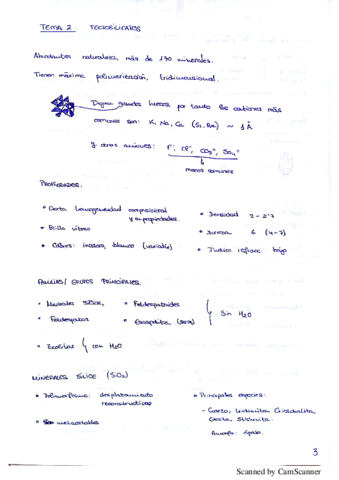 TEMA 2: TECTOSILICATOS
Abundantes naturaleza, más de 170 minerales.
Tienen máxima polimerización, tridimensional.
Dejan grandes huecos, por tanto los cationes más
comunes son: K, Na, Ca (Sr, Ba) ~ 1 Å
Y otros aniones: F⁻, Cl⁻, CO₃⁼, SO₄⁼
menos comunes
PROPIEDADES:
• Cierta homogeneidad composicional y en propiedades.
• Brillo vítreo
• Colores: incoloro, blanco (variable)
• Densidad 2 - 2'7
• Dureza 6 (4-7)
• Índice refrac. bajo
FAMILIAS / GRUPOS PRINCIPALES.
• Minerales SÍLICE,
• Feldespatos
• Feldespatoides
• Escapolitas (serie)
Sin H₂O
• Zeolitas con H₂O
MINERALES SÍLICE (SiO₂)
• Polimorfismo: desplazamiento
reconstructivas
• Son metaestables
• Principales especies:
- Cuarzo, tridimita, cristobalita,
Coesita, Stishovita.
Amorfo: ópalo.
3
Scanned by CamScanner